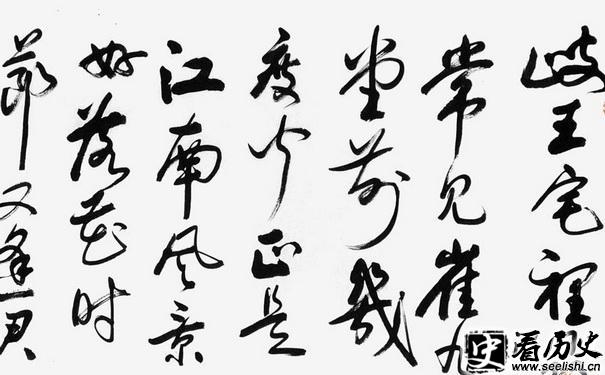 岐王宅裡
常见崔九
堂前幾
度闻正是
江南风景
好落花时
節又逢君
史看历史
www.seelishi.cn